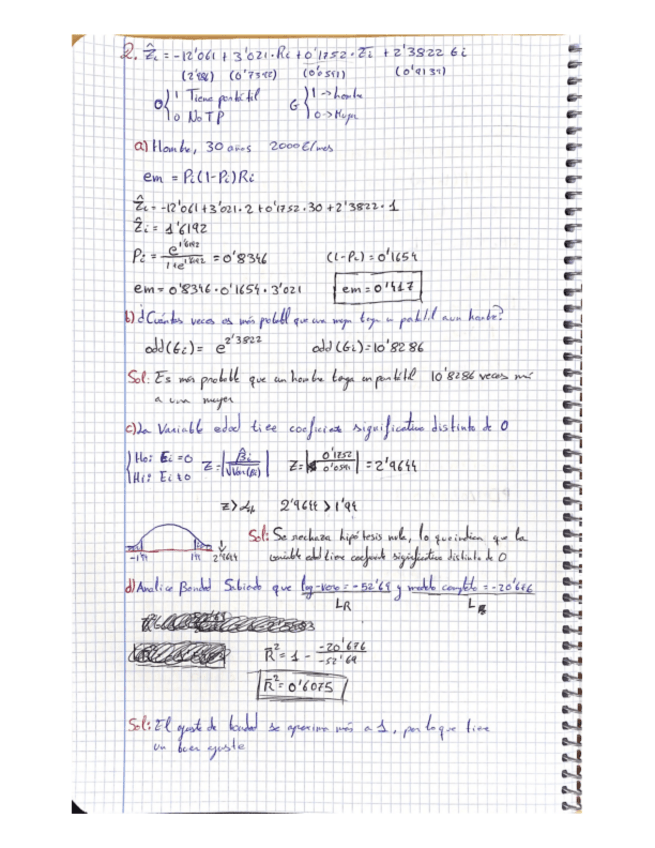 2. Ẑi = -12'061 + 3'021 · Ri + 0'1752 · Ei + 2'3822 Gi
(0'0591) (0'9131)
O { 1 Tiene portátil G { 1 -> hombre
0 No TP 0 -> Mujer
a) Hombre, 30 años 2000€/mes
em = Pi(1-Pi)Ri
Ẑi = -12'061 + 3'021 · 2 + 0'1752 · 30 + 2'3822 · 1
Ẑi = 1'6192
Pi = e^1'6192 / 1+e^1'6192 = 0'8346 (1-Pi) = 0'1654
em = 0'8346 · 0'1654 · 3'021 em = 0'417
b) ¿Cuántas veces es más probabl que una mujer tenga un portátil a un hombre?
odd(Gi) = e^2'3822 odd(Gi) = 10'8286
Sol: Es más probable que un hombre tenga un portátil 10'8286 veces más
a una mujer
c) La Variable edad tiene coeficiente significativo distinto de 0
{ H0: Ei = 0 Z = |β̂i / √Var(βi)| Z = |0'1752 / 0'0591| = 2'9644
H1: Ei ≠ 0
2'9644 > 1'96
Sol: Se rechaza hipótesis nula, lo que indica que la
-1'96 1'96 2'9644 variable edad tiene coeficiente significativo distinto de 0
d) Analice Bondad Sabiendo que log-vero = -52'69 y modelo completo = -20'676
LR
R̄² = 1 - -20'676 / -52'69
R̄² = 0'6075
Sol: El ajuste de bondad se aproxima más a 1, por lo que tiene
un buen ajuste